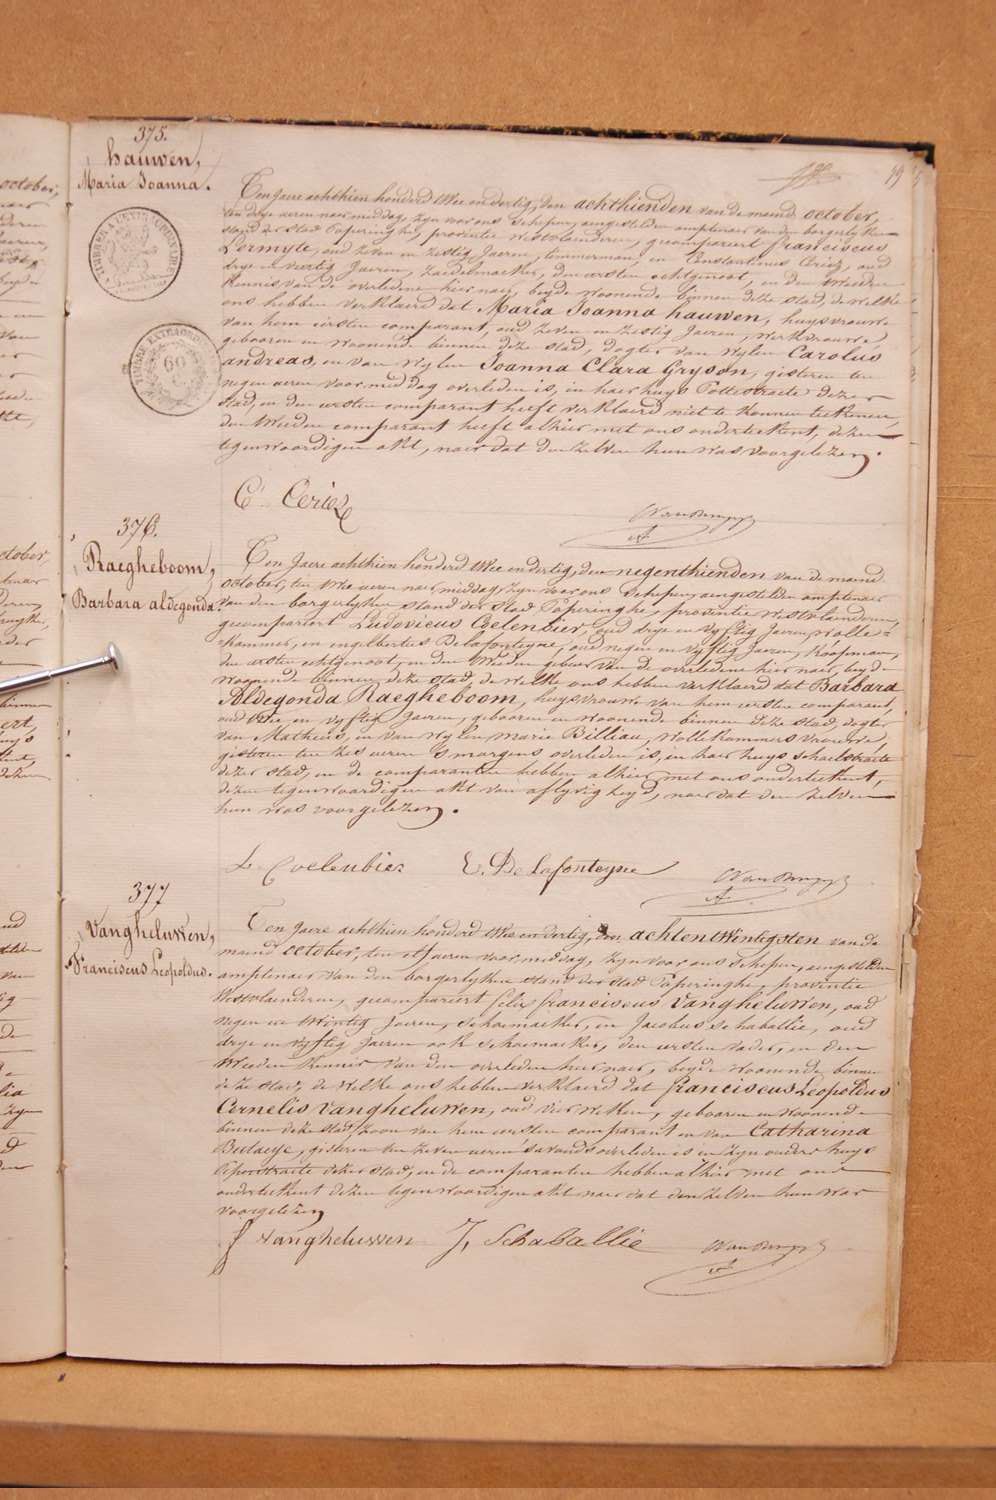 99
375.
hauwen,
Maria Joanna.
Ten jaere achthien honderd twee en dertig, den achthienden van de maend october,
ten drye ueren naer middag, zyn voor ons Schepen, aengestelden amptenaer van den borgerlyken
stand der stad Poperinghe, provintie westvlaenderen, gecompareert franciscus
Lermyte, oud zeven en zestig Jaeren, timmerman, en Constantinus Ceriez, oud
drye en veertig Jaeren, zaedemaeker, den eersten echtgenoot, en den tweeden
kennis van de overledene hier naer, beyde woonende binnen deze stad, de welke
ons hebben verklaerd dat Maria Joanna hauwen, huysvrouwe
van hem eersten comparant, oud zeven en zestig Jaeren, werkvrouwe,
gebooren en woonende binnen deze stad, dogter van wylen Carolus
andreas, en van wylen Joanna Clara Gryson, gisteren ten
negen ueren voor middag overleden is, in haer huys Pottestraete dezer
stad, en den eersten comparant heeft verklaerd niet te konnen teekenen,
den tweeden comparant heeft alhier met ons onderteekent, dezen
tegenwoordigen akt, naer dat den zelven hun was voorgelezen.
C. Ceriez
376.
Raegheboom,
Barbara aldegonda
Ten Jaere achthien honderd twee en dertig, den negenthienden van de maend
october, ten twee ueren naer middag, zyn voor ons Schepen, aengestelden amptenaer
van den borgerlyken stand der stad Poperinghe, provintie westvlaenderen,
gecompareert Ludovicus Coelenbier, oud drye en vyftig Jaeren, wolle-
kammer, en engelbertus Delafonteyne, oud negen en vyftig Jaeren, koopman,
den eersten echtgenoot, en den tweeden gebuer van de overledene hier naer, beyde
woonende binnen deze stad, de welke ons hebben verklaerd dat Barbara
Aldegonda Raegheboom, huysvrouwe van hem eersten comparant,
oud twee en vyftig Jaeren, gebooren en woonende binnen deze stad, dogter
van Matheus, en van wylen marie Billiau, wollekammers vrouwe,
gisteren ten zes ueren 's morgens overleden is, in haer huys schaelstraete
dezer stad, en de comparanten hebben alhier met ons onderteekent,
dezen tegenwoordigen akt van aflyvigheyd, naer dat den zelven
hun was voorgelezen.
L Coelenbier E. De Lafonteyne
377
Vangheluwen,
Franciscus Leopoldus.
Ten Jaere achthien honderd twee en dertig, den achtentwintigsten van de
maend october, ten elf ueren voor middag, zyn voor ons Schepen, aengestelden
amptenaer van den borgerlyken stand der stad Poperinghe, provintie
Westvlaenderen, gecompareert felix franciscus Vangheluwen, oud
negen en twintig Jaeren, schoemaeker, en Jacobus schabellie, oud
drye en vyftig Jaeren ook schoemaeker, den eersten vader, en den
tweeden kennis van den overleden hier naer, beyde woonende binnen
deze stad, de welke ons hebben verklaerd dat franciscus Leopoldus
Cornelis vangheluwen, oud vier weken, gebooren en woonende
binnen deze stad, zoon van hem eersten comparant en van Catharina
Butaeye, gisteren ten zeven ueren 's avonds overleden is en zyn ouders huys
dezer stad, en de comparanten hebben alhier met ons
onderteekent dezen tegenwoordigen akt naer dat den zelven hun was
voorgelezen
f vangheluwen J, Schaballie